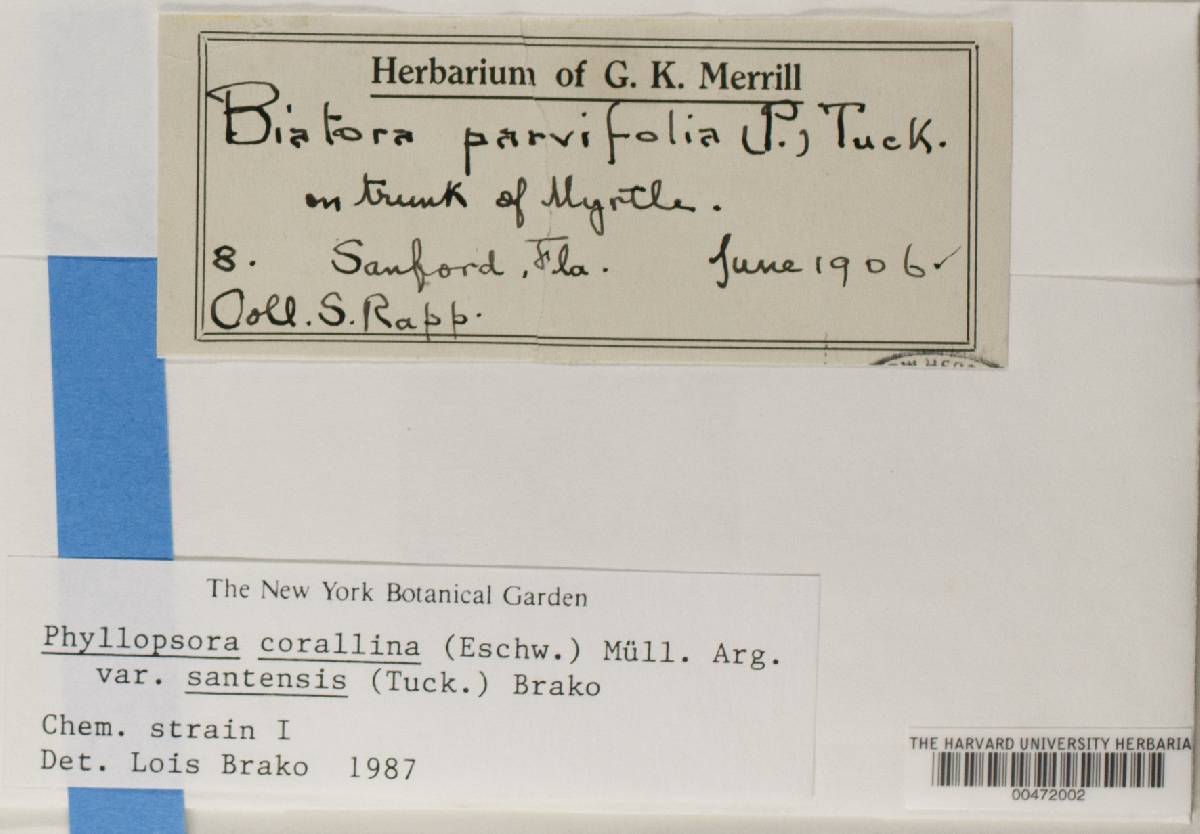 Herbarium of G. K. Merrill
Biatora parvifolia (P.) Tuck.
on trunk of Myrtle.
8. Sanford, Fla. June 1906
Coll. S. Rapp.
The New York Botanical Garden
Phyllopsora corallina (Eschw.) Müll. Arg.
var. santensis (Tuck.) Brako
Chem. strain I
Det. Lois Brako 1987
THE HARVARD UNIVERSITY HERBARIA
00472002